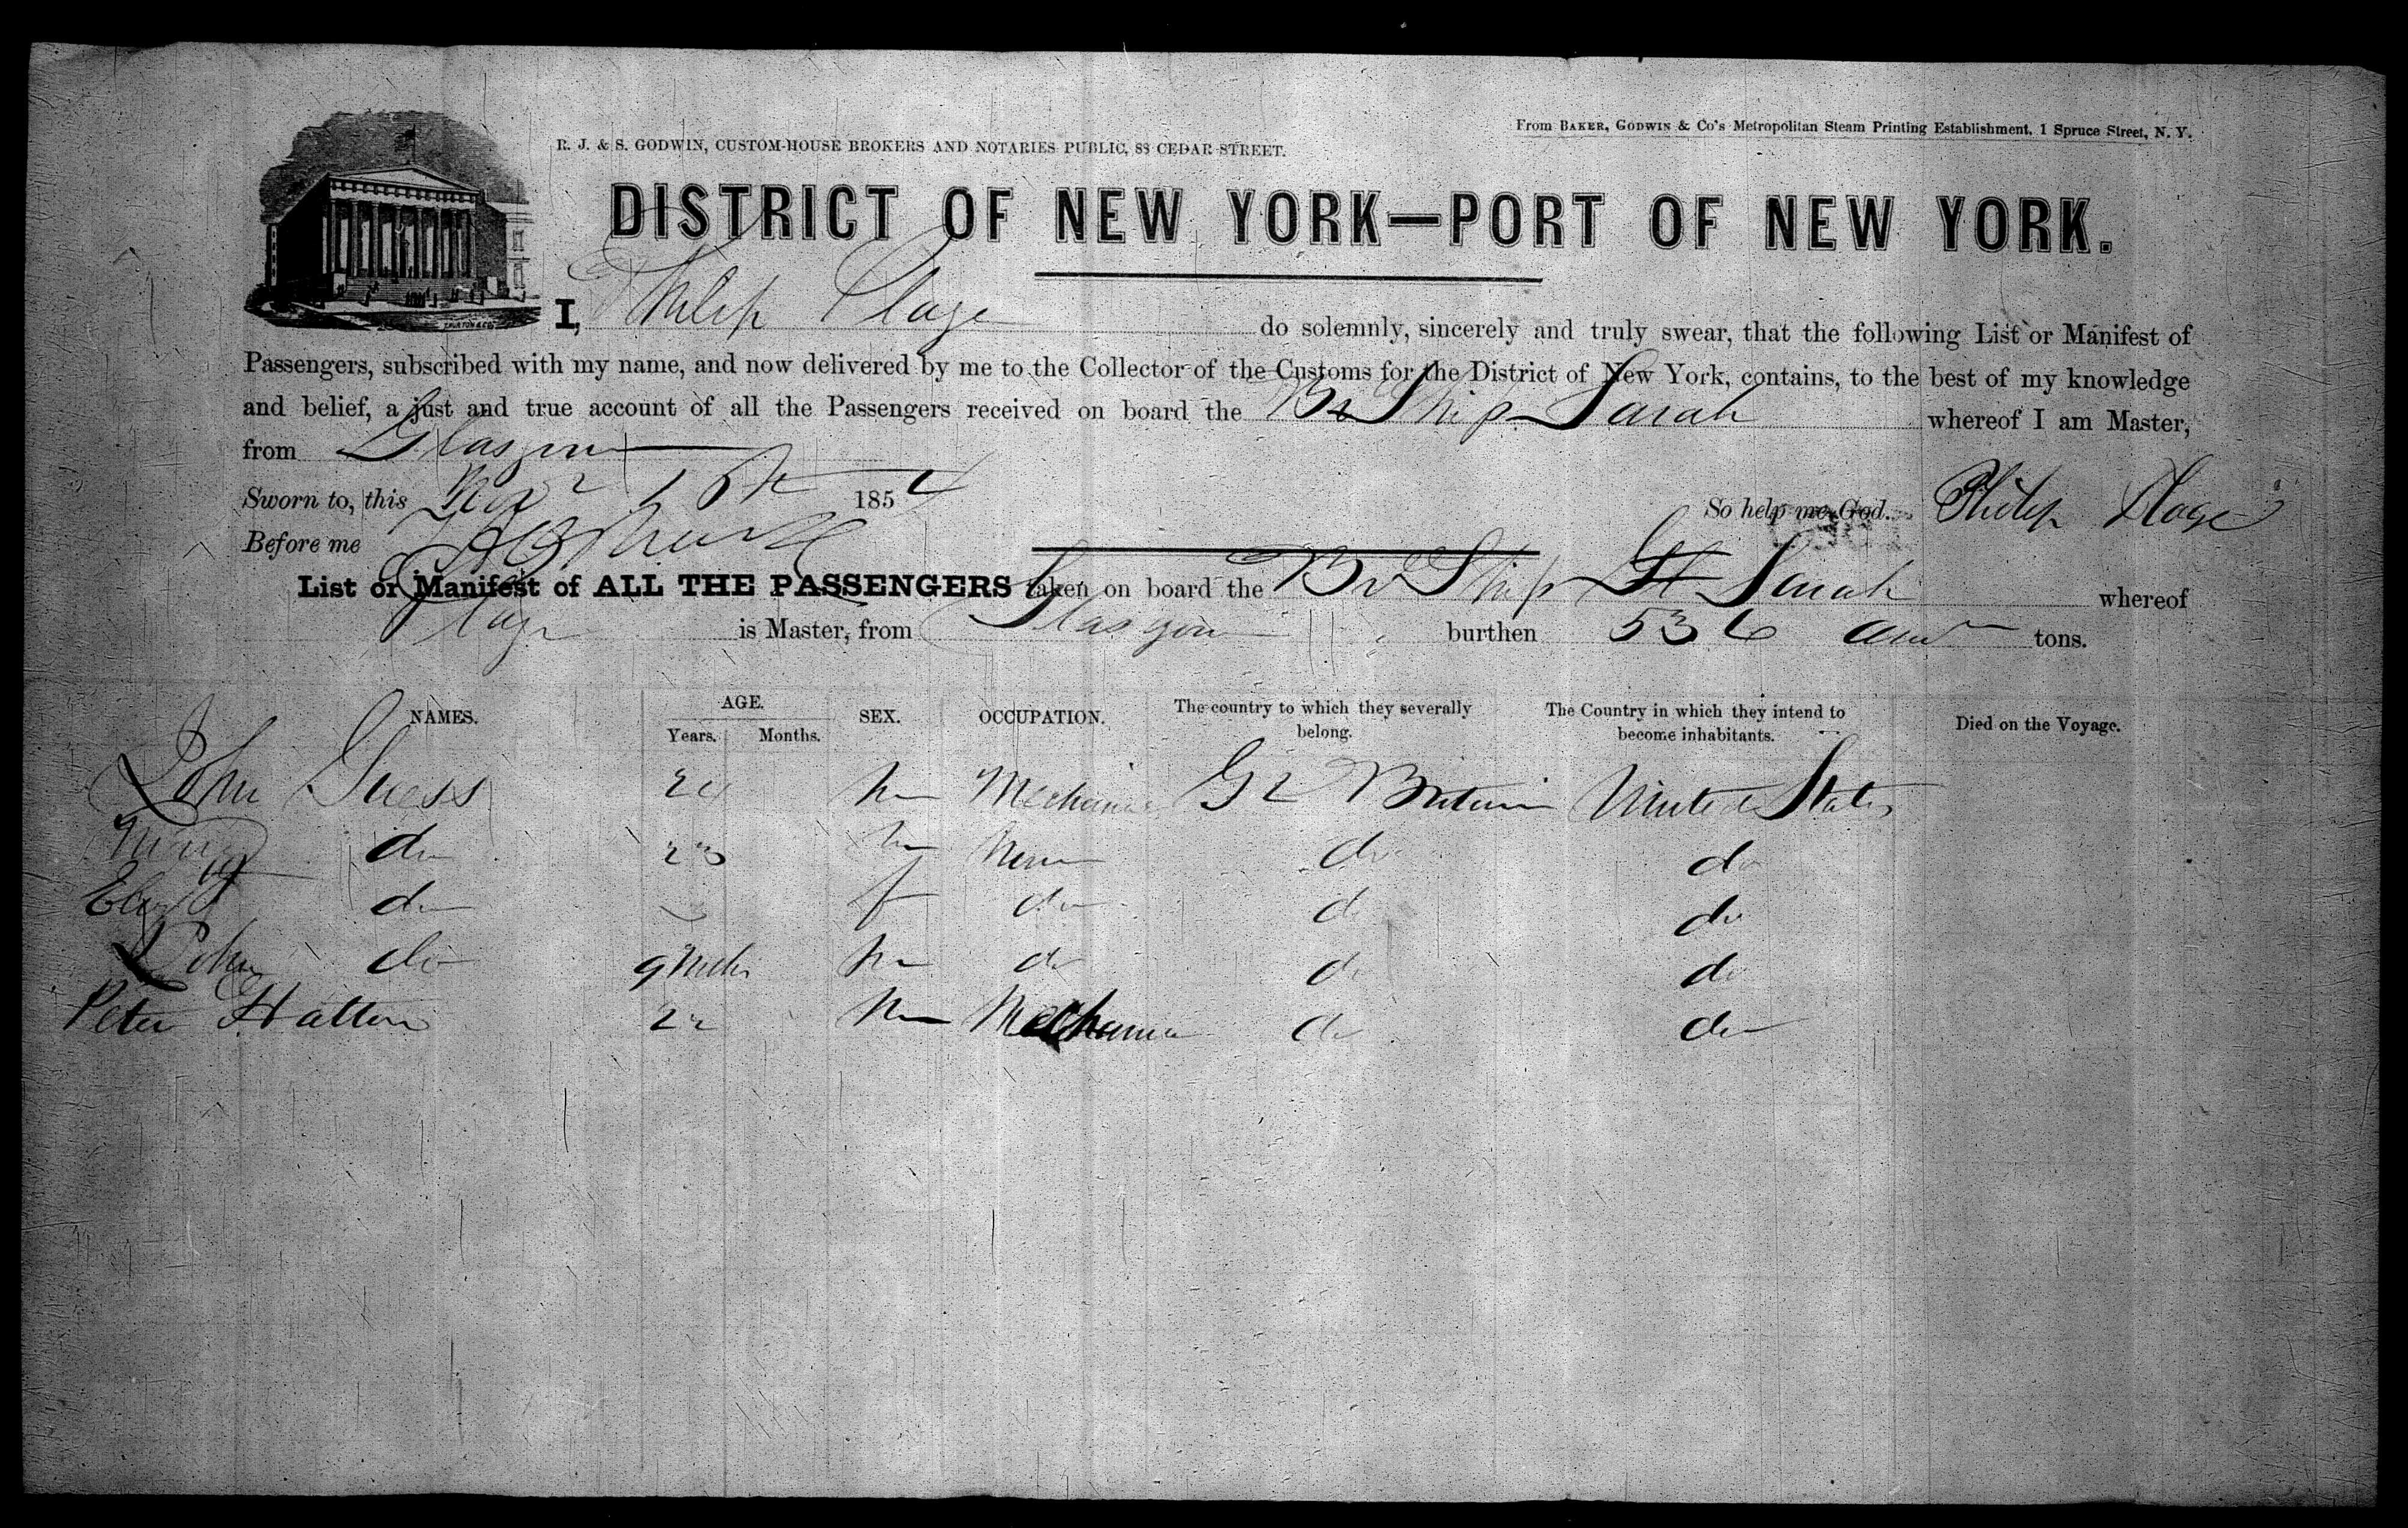 From BAKER, GODWIN & Co's Metropolitan Steam Printing Establishment, 1 Spruce Street, N. Y.
R. J. & S. GODWIN, CUSTOM-HOUSE BROKERS AND NOTARIES PUBLIC, 88 CEDAR STREET.
DISTRICT OF NEW YORK—PORT OF NEW YORK.
I, Philip Slage do solemnly, sincerely and truly swear, that the following List or Manifest of
Passengers, subscribed with my name, and now delivered by me to the Collector of the Customs for the District of New York, contains, to the best of my knowledge
and belief, a just and true account of all the Passengers received on board the Br Ship Sarah whereof I am Master,
from Glasgow
Sworn to, this 1854 So help me God. Philip
Before me
List or Manifest of ALL THE PASSENGERS taken on board the Br Ship Sarah whereof
is Master, from Glasgow burthen 536 tons.
NAMES. AGE. Years. Months. SEX. OCCUPATION. The country to which they severally belong. The Country in which they intend to become inhabitants. Died on the Voyage.
John Guess 24 m Mechanic Gt Britain United States
Mary do 23 m None do do
do f do do do
John do 9 Mths m do do do
Peter Hatton 22 m Mechanic do do